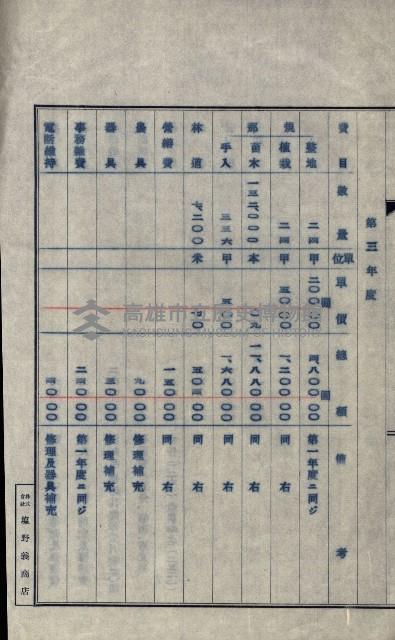 第三年度
費目 數量 單位 單價 總額 備考
整地 二四 甲 二〇〇〇〇 四、八〇〇〇〇 第一年度ニ同ジ
植栽 二四 甲 五〇〇〇 一、二〇〇〇〇 同右
苗木 一三二、〇〇〇 本 九 一一、八八〇〇〇 同右
手入 三三六 甲 五〇〇 一、六八〇〇〇 同右
林道 七、二〇〇 米 五〇四〇〇〇 同右
營繕費 一五〇〇〇 同右
農具 九〇〇〇 修理補充
器具 三〇〇〇 修理補充
事務雜費 二四〇〇〇 第一年度ニ同ジ
電話維持 四〇〇〇 修理及器具補充
圓
圓
高雄市立歷史博物館
KAOHSIUNG MUSEUM OF HISTORY
株式會社 塩野義商店